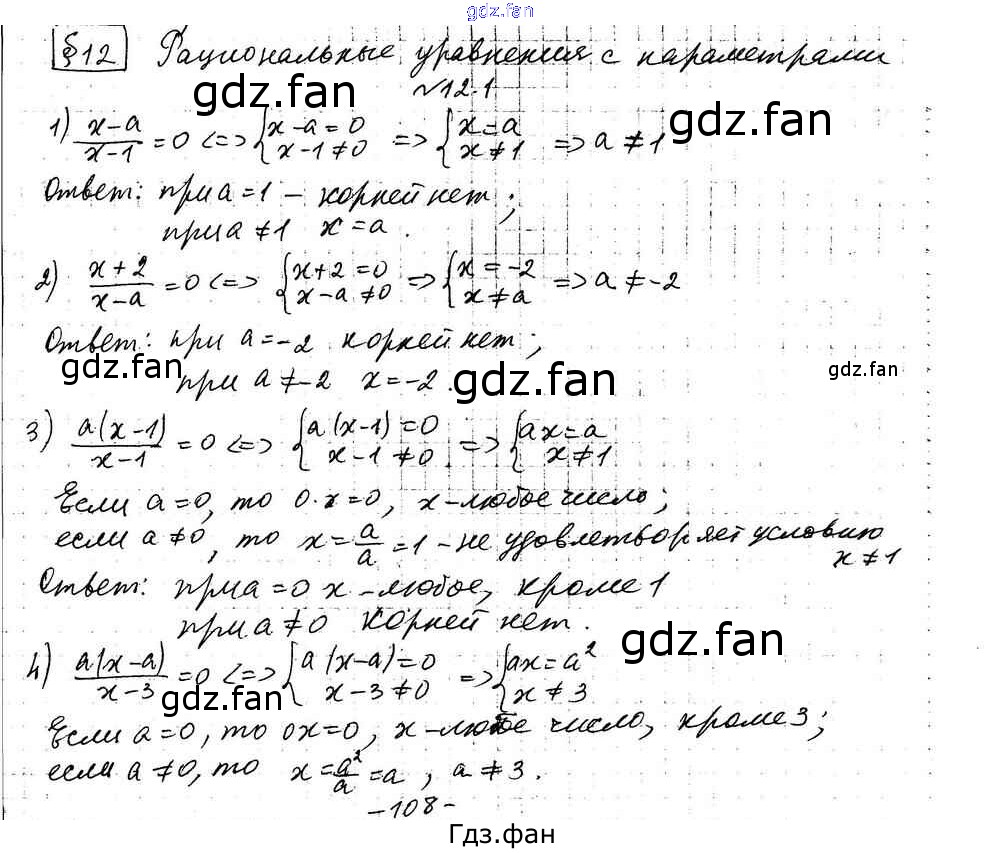 gdz.fan
§12 Рациональные уравнения с параметрами
gdz.fan
№12.1
gdz.fan
1) (x-a)/(x-1) = 0 <=> {x-a=0 {x-1≠0 => {x=a {x≠1 => a≠1
Ответ: при a=1 – корней нет;
при a≠1 x=a.
2) (x+2)/(x-a) = 0 <=> {x+2=0 {x-a≠0 => {x=-2 {x≠a => a≠-2
Ответ: при a=-2 корней нет;
gdz.fan gdz.fan gdz.fan
при a≠-2 x=-2.
3) a(x-1)/(x-1) = 0 <=> {a(x-1)=0 {x-1≠0 => {ax=a {x≠1
Если a=0, то 0·x=0, x-любое число;
если a≠0, то x=a/a=1 – не удовлетворяет условию
x≠1
Ответ: при a=0 x-любое, кроме 1
при a≠0 корней нет.
gdz.fan
4) a(x-a)/(x-3) = 0 <=> {a(x-a)=0 {x-3≠0 => {ax=a² {x≠3
gdz.fan
Если a=0, то 0x=0, x-любое число, кроме 3;
если a≠0, то x=a²/a=a, a≠3.
-108-
Гдз.фан